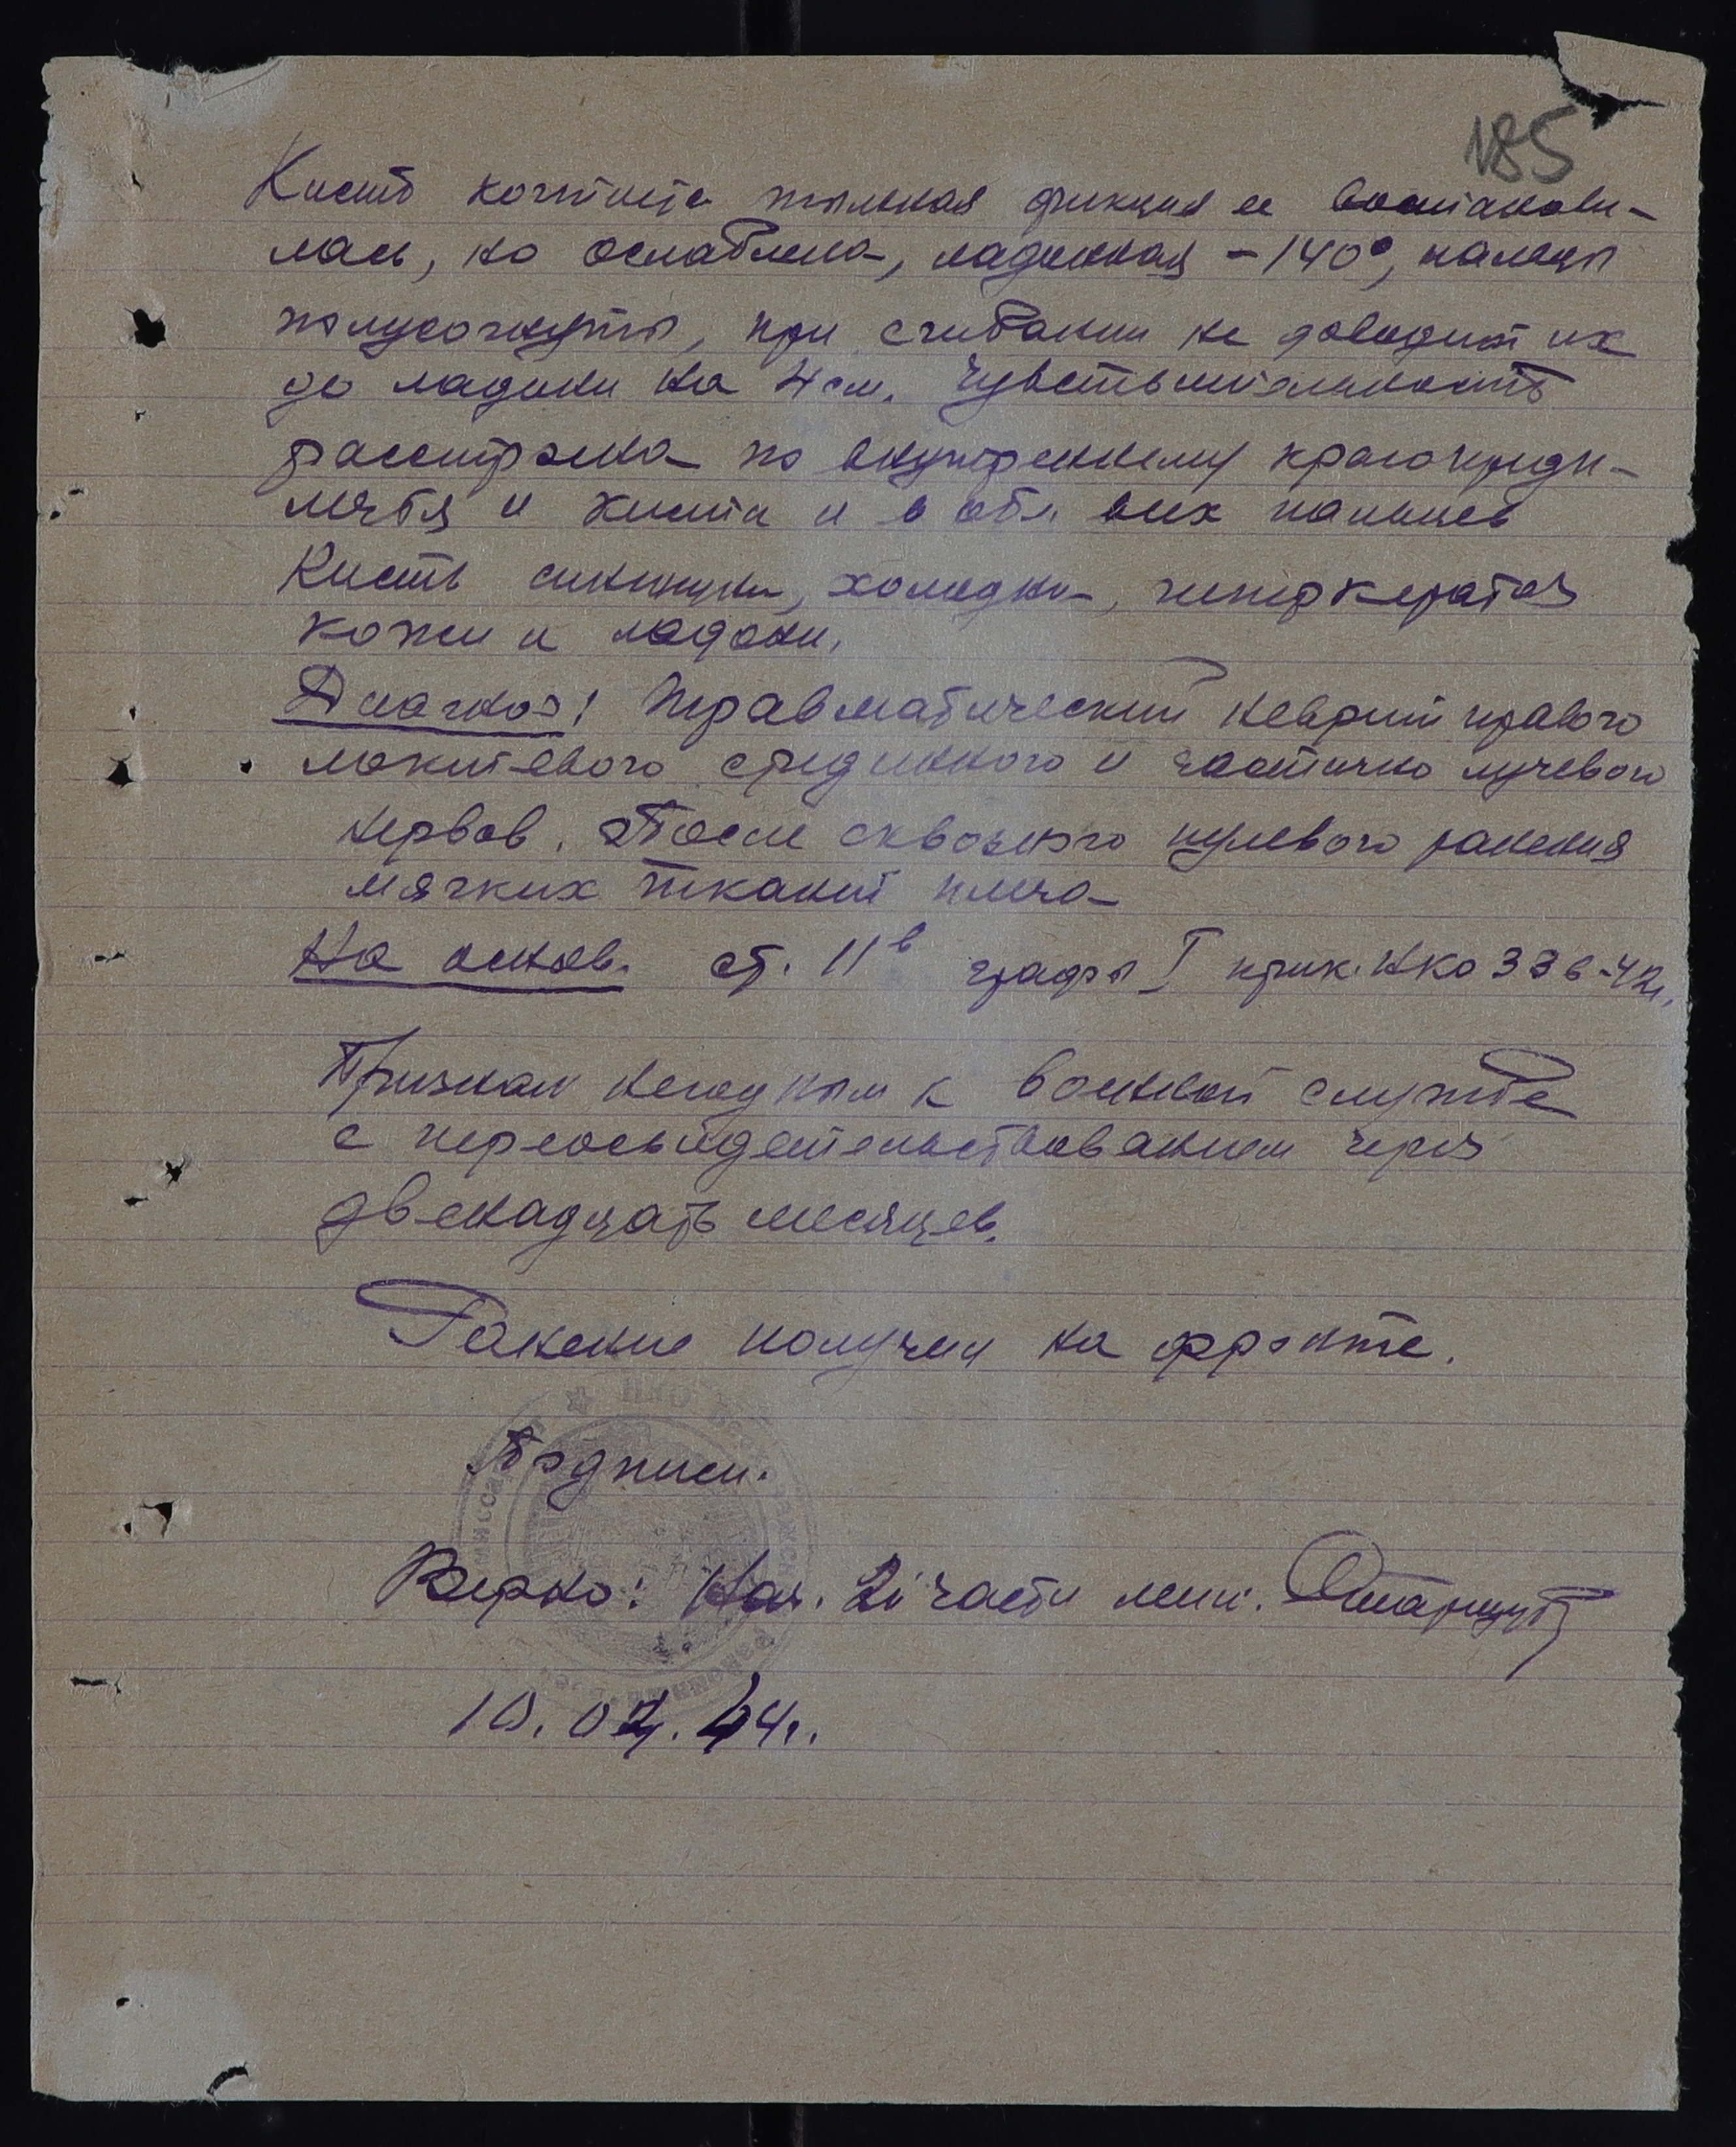 185
Кисть когтиста тыльная фикция ее востанови-
лась, но ослаблена, ладонная - 140°, пальцы
полусогнуты, при сгибании не доводит их
до ладони на 4 см. Чувствительность
расстроена по внутреннему краю предп-
лечья и кисти и в обл. всех пальцев
Кисть синюшна, холодна, гиперкератоз
кожи и ладони.
Диагноз: Травматический неврит правого
локтевого срединного и частично лучевого
нервов. После сквозного пулевого ранения
мягких тканей плеча
На основ. ст. 11в графы I прик. НКО 336-42г.
Признан негодным к военной службе
с переосвидетельствованием через
двенадцать месяцев.
Ранение получил на фронте.
Подписи.
Верно: Нач. 2й части лейт.
10.02.44г.